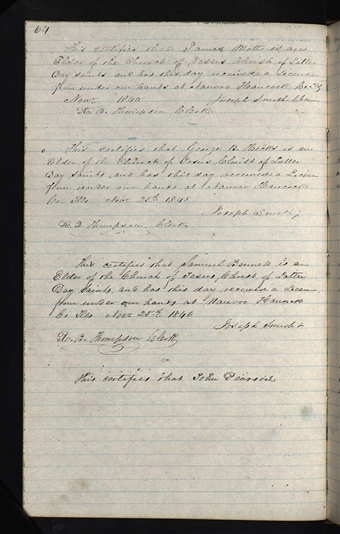 64
This certifies that James Mott is an
Elder of the Church of Jesus Christ of Latter
Day Saints, and has this day received a License
from under our hands at Nauvoo Hancock Co. Ills
Nov. 1840 Joseph Smith
R. B. Thompson Clerk
This certifies that George B. Hicks is an
Elder of the Church of Jesus Christ of Latter
Day Saints, and has this day received a Licen
from under our hands at Nauvoo Hancock
Co Ills Nov 25th 1840
Joseph Smith
R. B. Thompson Clerk
This certifies that Samuel Bennett is an
Elder of the Church of Jesus Christ of Latter
Day Saints, and has this day received a Licen
from under our hands at Nauvoo Hancock
Co Ills Nov 25th 1840
Joseph Smith
R. B. Thompson Clerk
This certifies that John